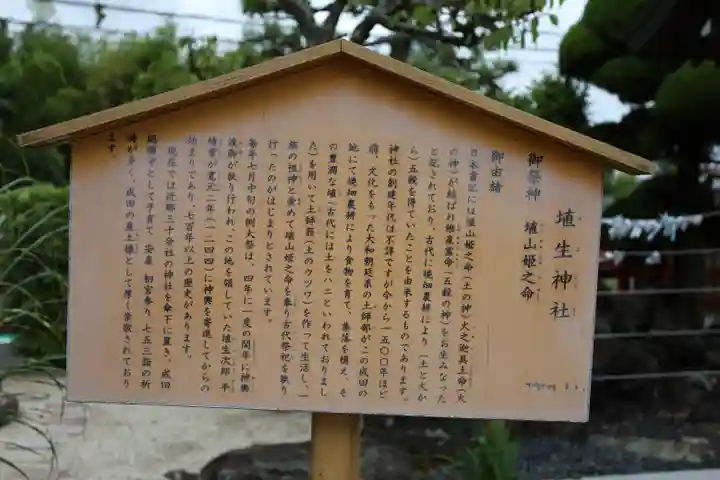 埴生神社
御祭神 埴山姫之命
御由緒
日本書記には埴山姫之命(土の神)火之迦具土命(火
の神)が結ばれ稚産霊命(五穀の神)をお生みなった
と記されており、古代に焼畑農耕により(土と火か
ら)五穀を得ていたことを由来するものであります。
神社の創建年代は不詳ですが今から一五〇〇年ほど
前、文化をもった大和朝廷系の土師部がこの成田の
地にて焼畑農耕により食物を育て、集落を構え、そ
の豊潤な埴(古代には土をハニといわれておりまし
た)を用いて土師器(土のウツワ)を作って生活し、一
族の祖神と崇めて埴山姫之命を奉り古代祭祀を執り
行ったのがはじまりとされています。
毎年七月中旬の例大祭は、四年に一度の閏年に神輿
渡御が執り行われ、この地を領していた埴生次郎平
時常が寛元二年(一二四四)に神輿を寄進してからの
始まりであり、七百年以上の歴史があります。
現在では近郷三十余社の神社を傘下に置き、成田
総鎮守として子育て、安産、初宮参り、七五三詣の祈
祷が多く、成田の産土様として厚く崇敬されており
ます。